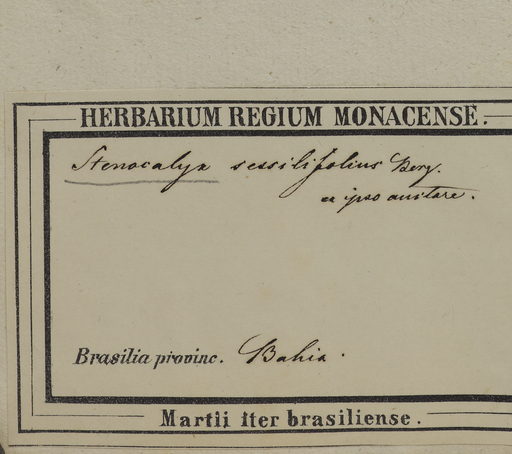 HERBARIUM REGIUM MONACENSE.
Stenocalyx sessilifolius Berg.
ex ipso auctore.
Brasilia provinc. Bahia.
Martii iter brasiliense.